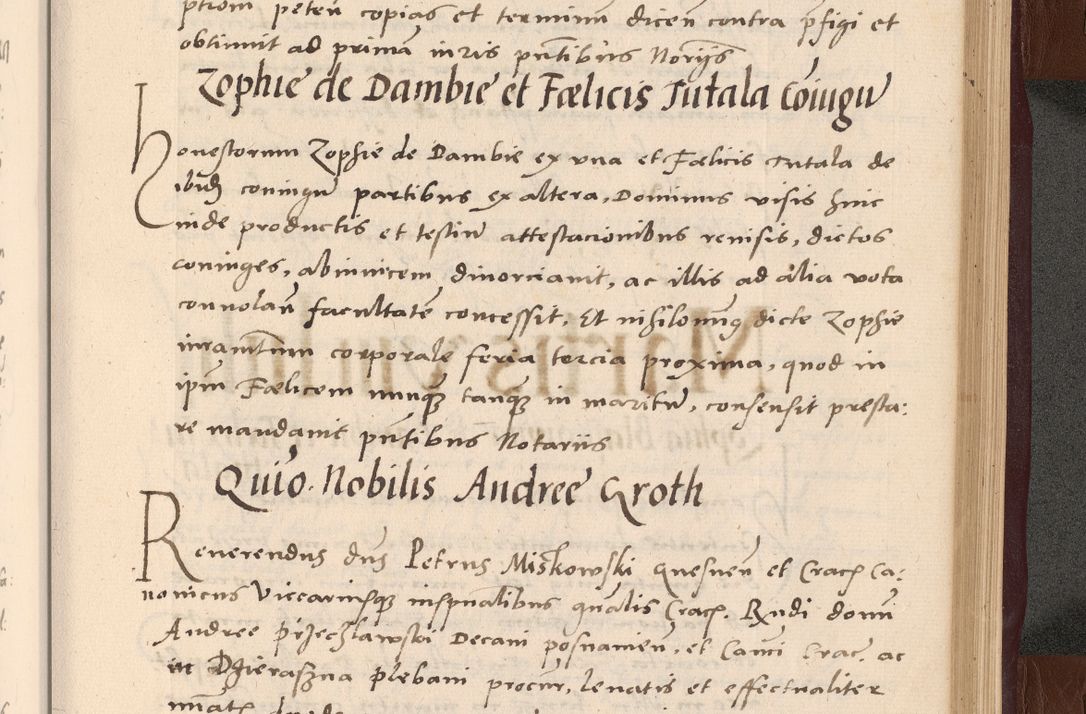 ptiom peten copias et terminum dicen contra pfigi et
obtinuit ad primā iuris pntibus Norijs
Zophie de Dambie et Fælicis Tutala Coiugu
Honestorum Zophie de Dambie ex una et Fælicis Tutala de
ibidē coniugū partibus ex altera, Dominus visis hinc
inde productis et testiū attestacionibus reuisis, dictos
coniuges, abinuicem diuorciauit, ac illis ad alia vota
conuolan̄ facultatē concessit, Et nihilominꝰ dicte Zophie
iuramtum corporale feria tercia proxima, quod in
ipm Fælicem nunquā tanquā in maritū, consensit presta:
re mandauit pntibus Notariis
Quiō. Nobilis Andree Groth
Reuerendus dns Petrus Miskowski Gnesnen et Cracō Ca:
nonicus Viccariusque inspualibus gnalis Cracō. Rndi domi
Andree Przeczlawski Decani posnanien, et Canci Crac̄, ac
in Dzieraszna plebani procur, leuatis et effectualiter